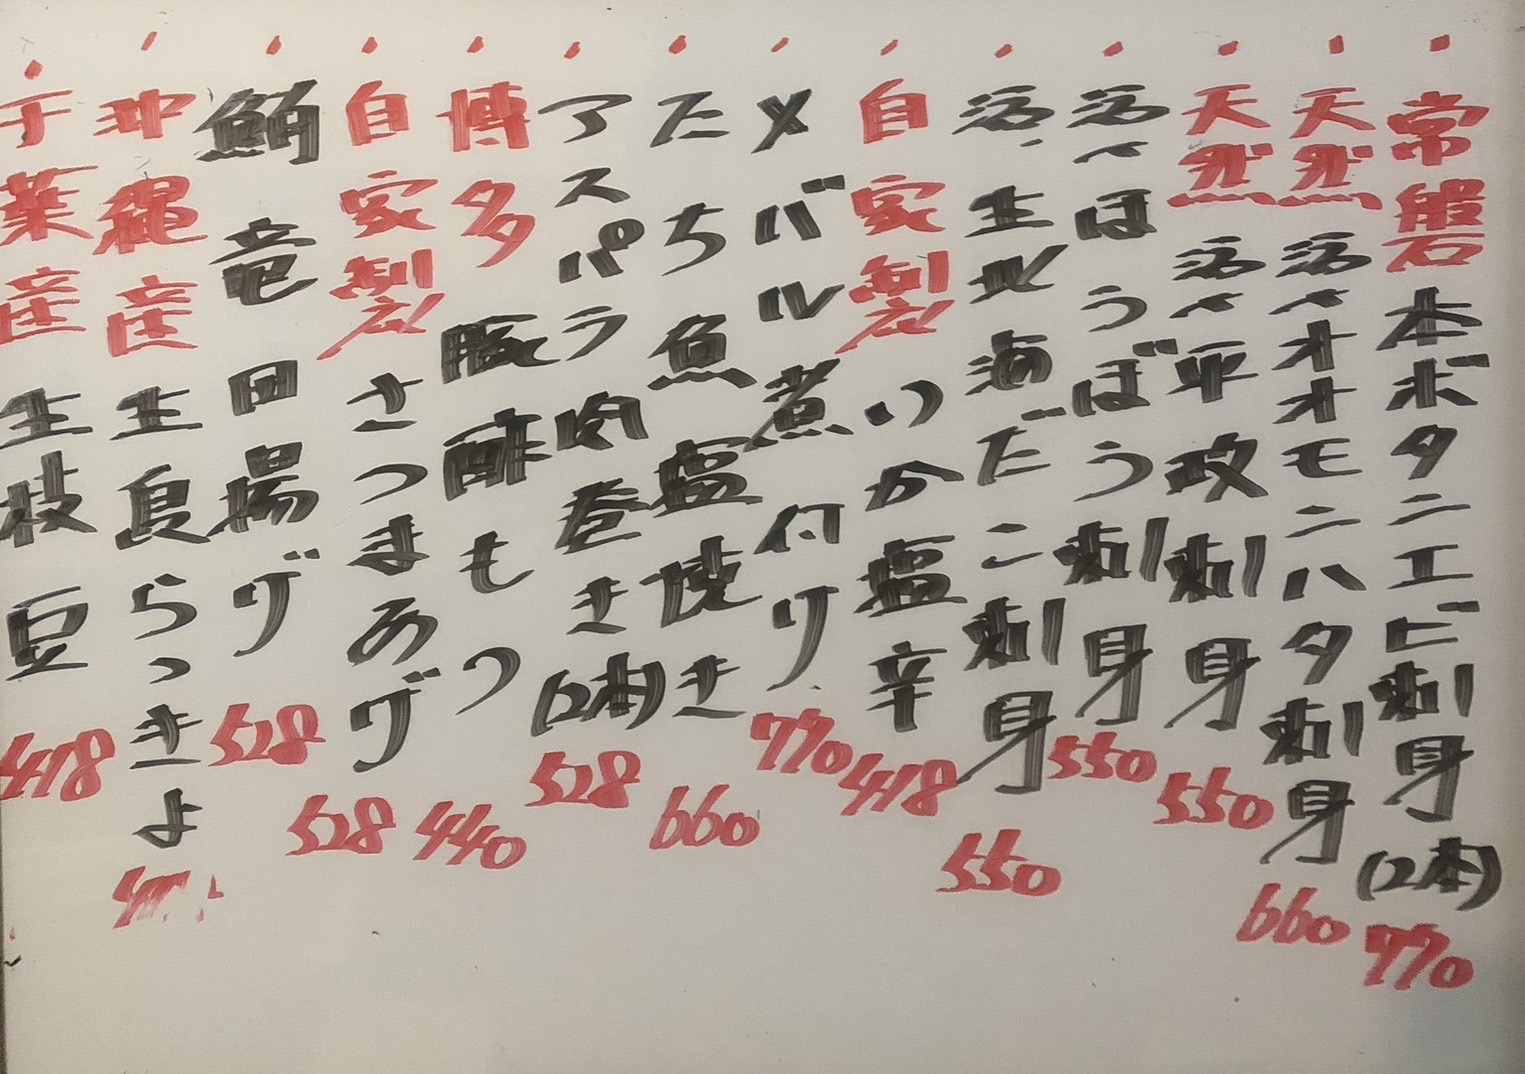 常磐 本ボタニエビ刺身(2本) 770
天然 活〆オオモンハタ刺身 660
天然 活〆平政刺身 550
活〆ほうぼう刺身 550
活〆生北海だこ刺身 550
自家製 いか塩辛 418
メバル煮付け 770
たち魚塩焼き 660
アスパラ肉巻き(2本) 528
博多 豚酢もつ 440
自家製 さつまあげ 528
鮪竜田揚げ 528
沖縄産 生島らっきょ
千葉産 生枝豆 418